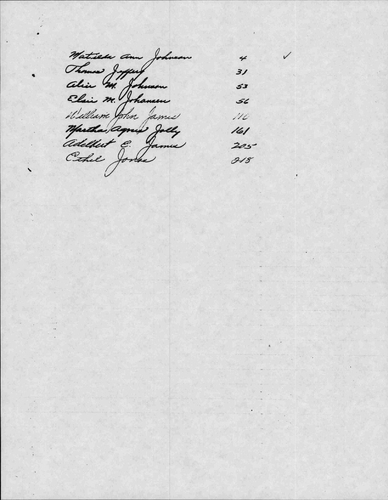 Matilda Ann Johnson 4 ✓
Thomas Jeffers 31
Alice M. Johnson 53
Elsie M. Johansen 56
William John James 116
Martha Agnes Jolly 161
Adelbert E. James 205
Ethel Jones 215